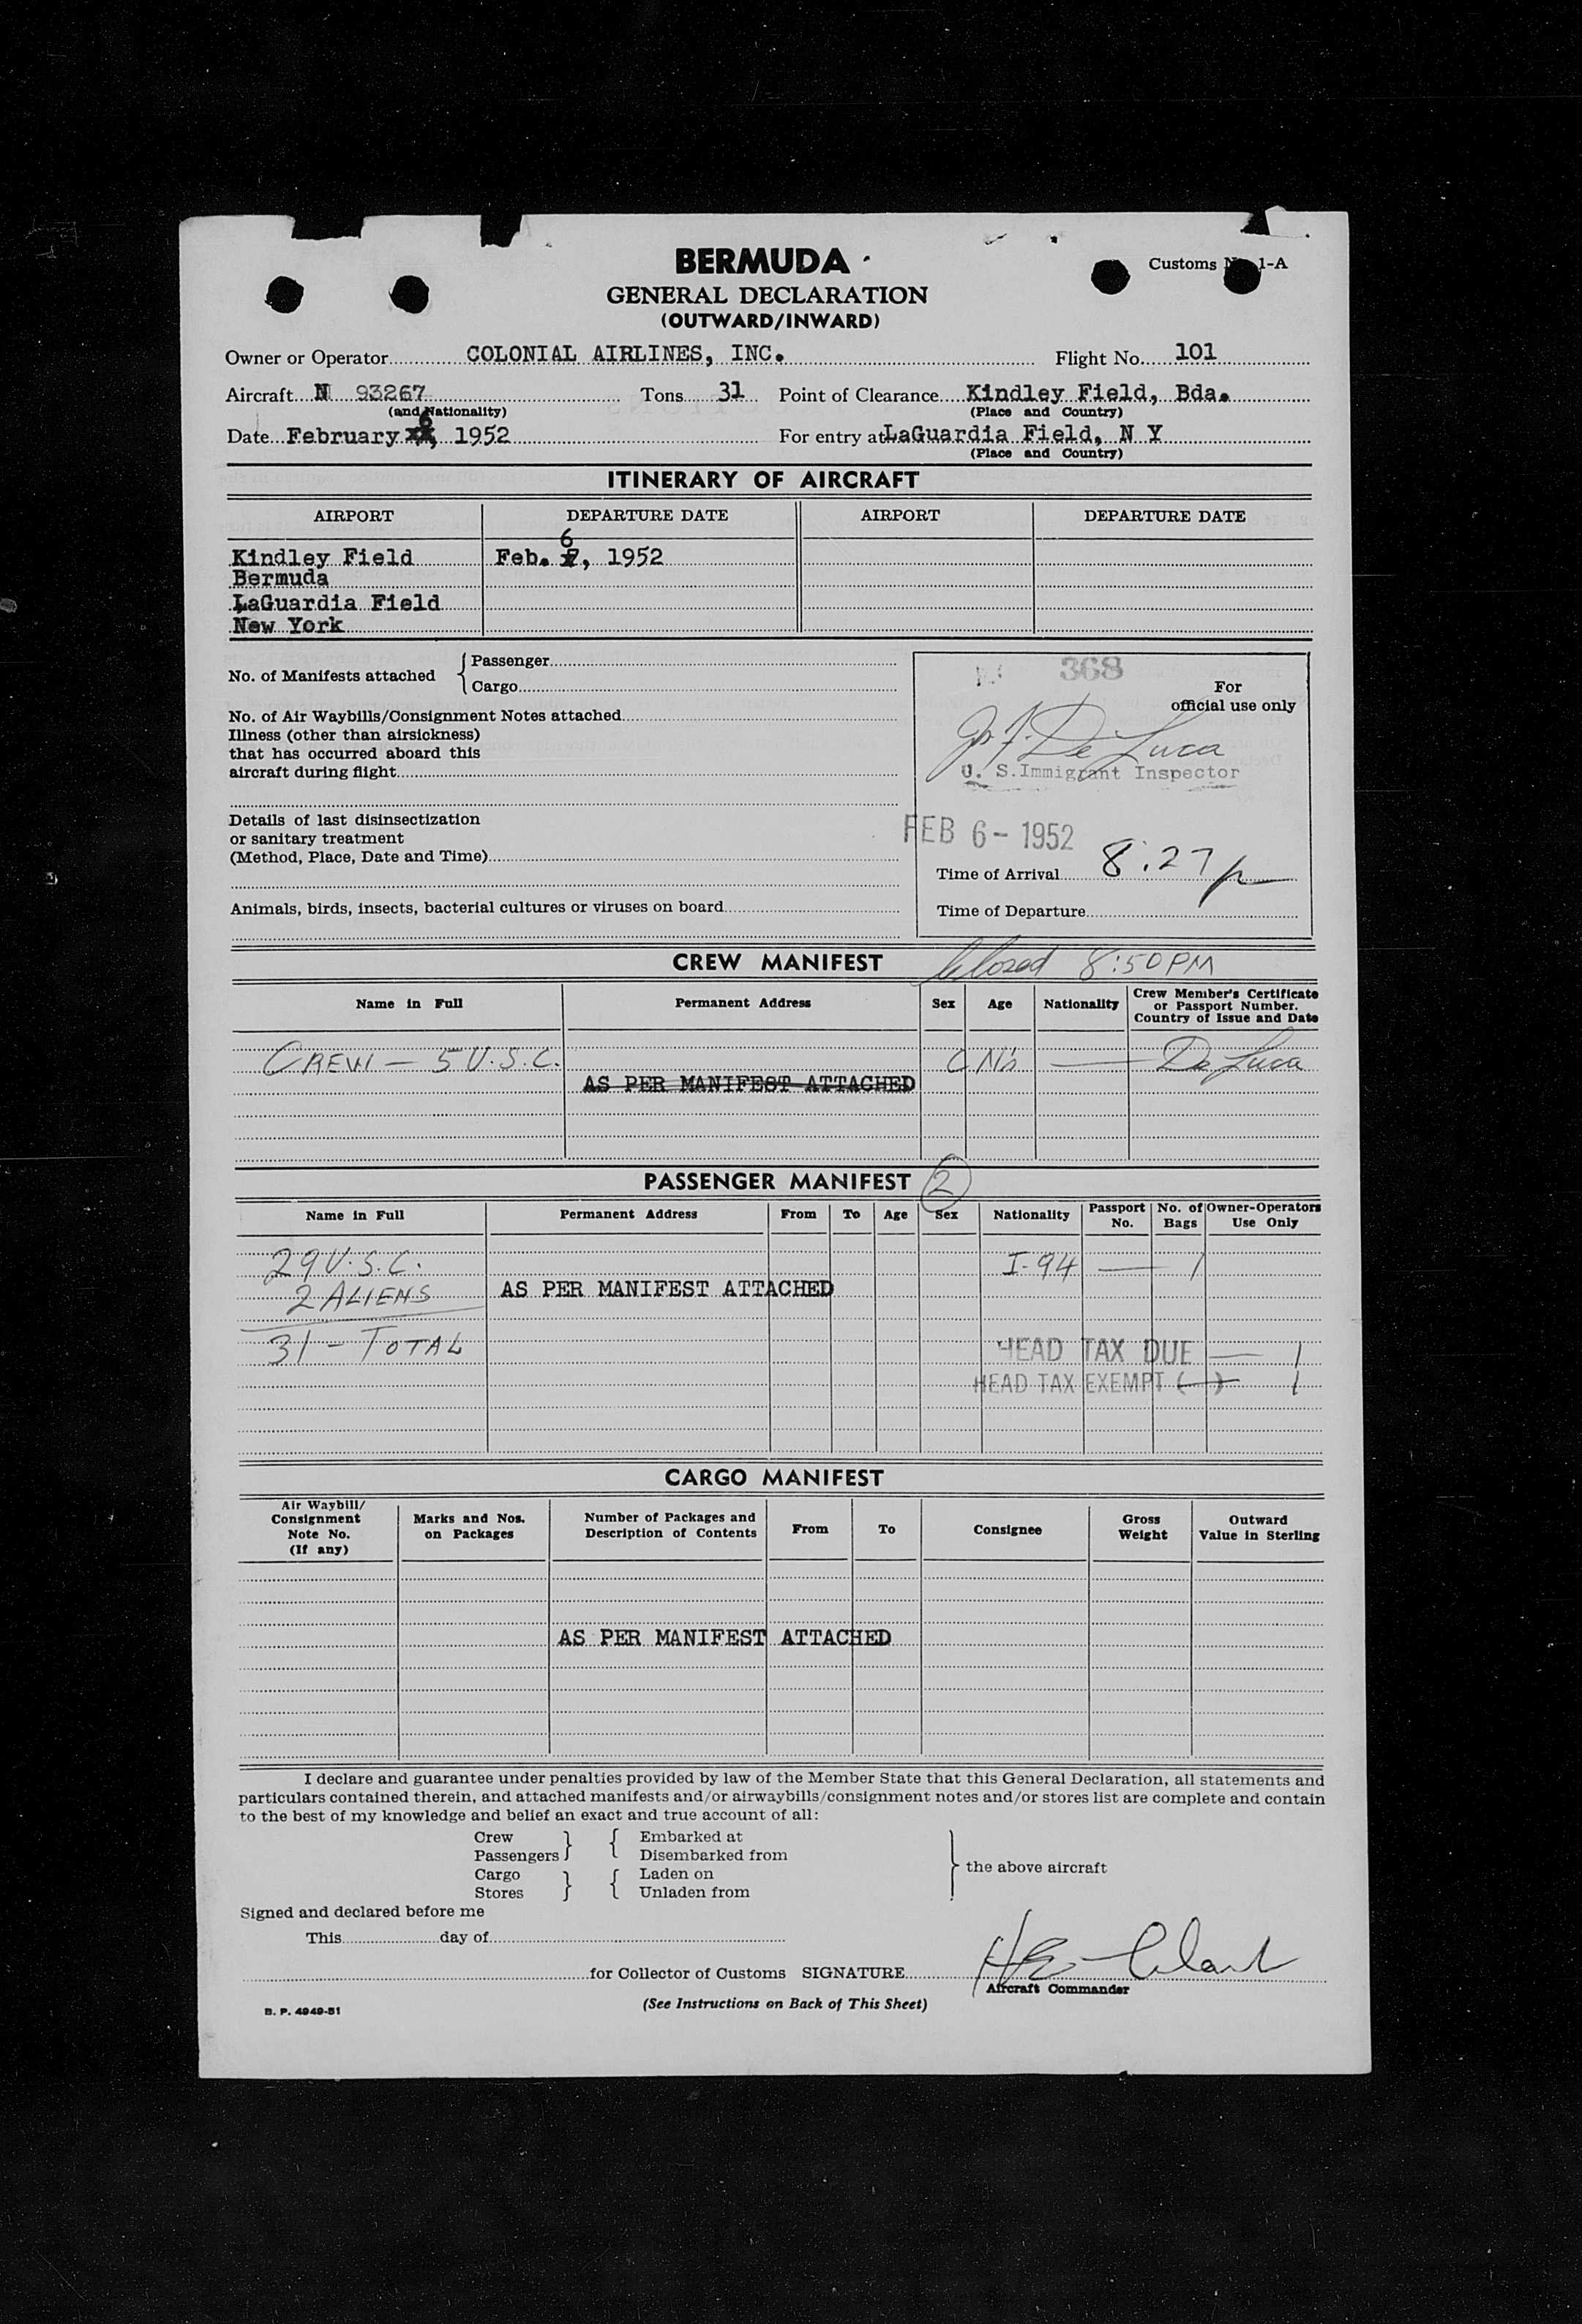 BERMUDA
Customs 1-A
GENERAL DECLARATION
(OUTWARD/INWARD)
Owner or Operator COLONIAL AIRLINES, INC. Flight No. 101
Aircraft N 93267 Tons 31 Point of Clearance Kindley Field, Bda.
(and Nationality) (Place and Country)
Date February 6, 1952 For entry at LaGuardia Field, N Y
(Place and Country)
ITINERARY OF AIRCRAFT
AIRPORT DEPARTURE DATE AIRPORT DEPARTURE DATE
Kindley Field Feb. 6, 1952
Bermuda
LaGuardia Field
New York
No. of Manifests attached { Passenger
Cargo
368
For
official use only
No. of Air Waybills/Consignment Notes attached
Illness (other than airsickness)
that has occurred aboard this
aircraft during flight
De Luca
U. S. Immigrant Inspector
Details of last disinsectization
or sanitary treatment
(Method, Place, Date and Time)
FEB 6 - 1952
Time of Arrival 8:27 p
Animals, birds, insects, bacterial cultures or viruses on board
Time of Departure
CREW MANIFEST Closed 8:50 PM
Name in Full Permanent Address Sex Age Nationality Crew Member's Certificate
or Passport Number.
Country of Issue and Date
CREW - 5 U.S.C. De Luca
AS PER MANIFEST ATTACHED
PASSENGER MANIFEST 2
Name in Full Permanent Address From To Age Sex Nationality Passport No. No. of Bags Owner-Operators Use Only
29 U.S.C. I-94 — 1
2 ALIENS AS PER MANIFEST ATTACHED
31 - TOTAL HEAD TAX DUE — 1
HEAD TAX EXEMPT (—) 1
CARGO MANIFEST
Air Waybill/
Consignment
Note No.
(If any)
Marks and Nos.
on Packages
Number of Packages and
Description of Contents
From To Consignee
Gross
Weight
Outward
Value in Sterling
AS PER MANIFEST ATTACHED
I declare and guarantee under penalties provided by law of the Member State that this General Declaration, all statements and
particulars contained therein, and attached manifests and/or airwaybills/consignment notes and/or stores list are complete and contain
to the best of my knowledge and belief an exact and true account of all:
Crew } { Embarked at
Passengers Disembarked from
Cargo } { Laden on } the above aircraft
Stores Unladen from
Signed and declared before me
This day of
for Collector of Customs SIGNATURE
Aircraft Commander
B. P. 4949-51
(See Instructions on Back of This Sheet)